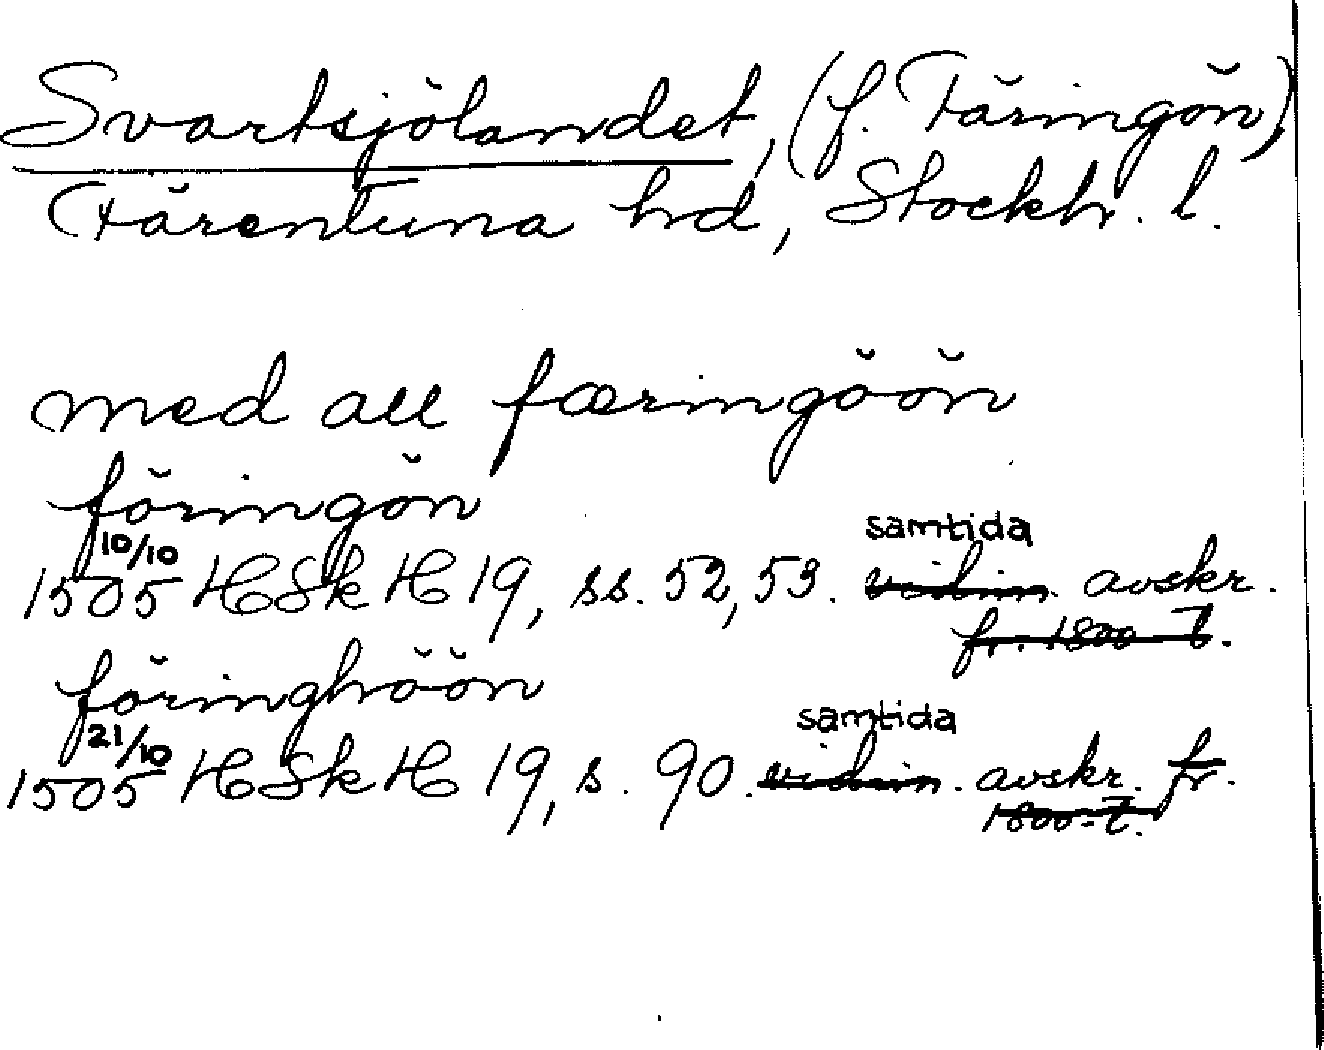 Svartsjölandet, (f. Färingön)
Färentuna hd, Stockh. l.
med all færingöön
föringön
10/10 samtida
1505 HSkH 19, ss. 52, 53. vidim. avskr.
fr. 1800-t.
föringhöön
21/10 samtida
1505 HSkH 19, s. 90. vidim. avskr. fr.
1800-t.